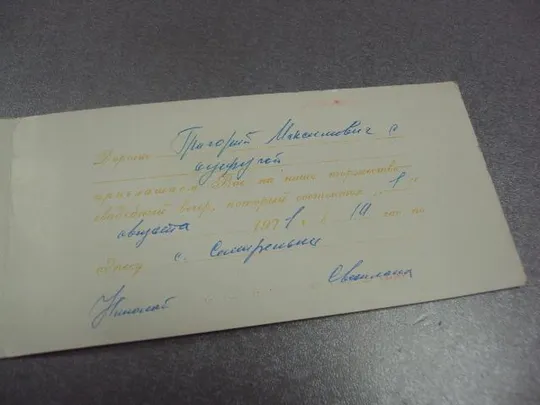 Дорогие Григорий Максимович с
супругой
приглашаем Вас на наше торжество
свадебный вечер, который состоится „1“
августа 1971 г. в 10 час по
адресу с.
Николай Светлана